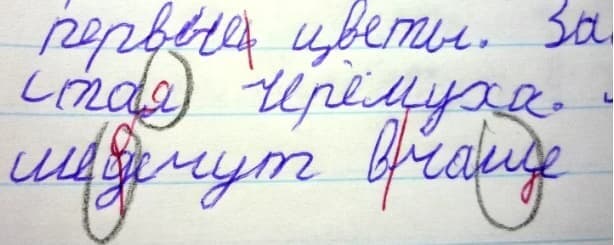 первые цветы. За
стая черёмуха.
шедечут вчаще